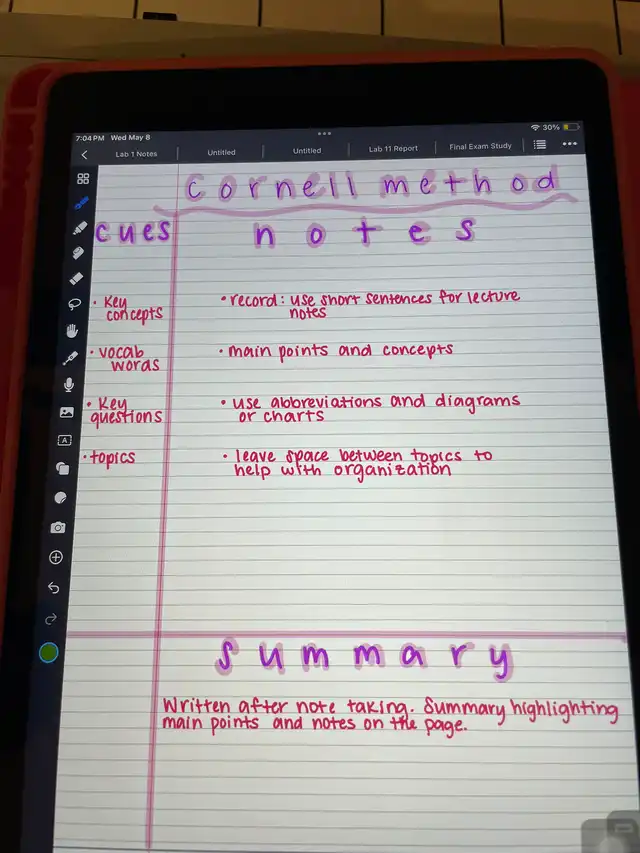 7:04 PM Wed May 8
30%
Lab 1 Notes
Untitled
Untitled
Lab 11 Report
Final Exam Study
cornell method
cues
notes
• Key
concepts
• record: use short sentences for lecture
notes
• vocab
words
• main points and concepts
• Key
questions
• use abbreviations and diagrams
or charts
• topics
• leave space between topics to
help with organization
summary
Written after note taking. Summary highlighting
main points and notes on the page.